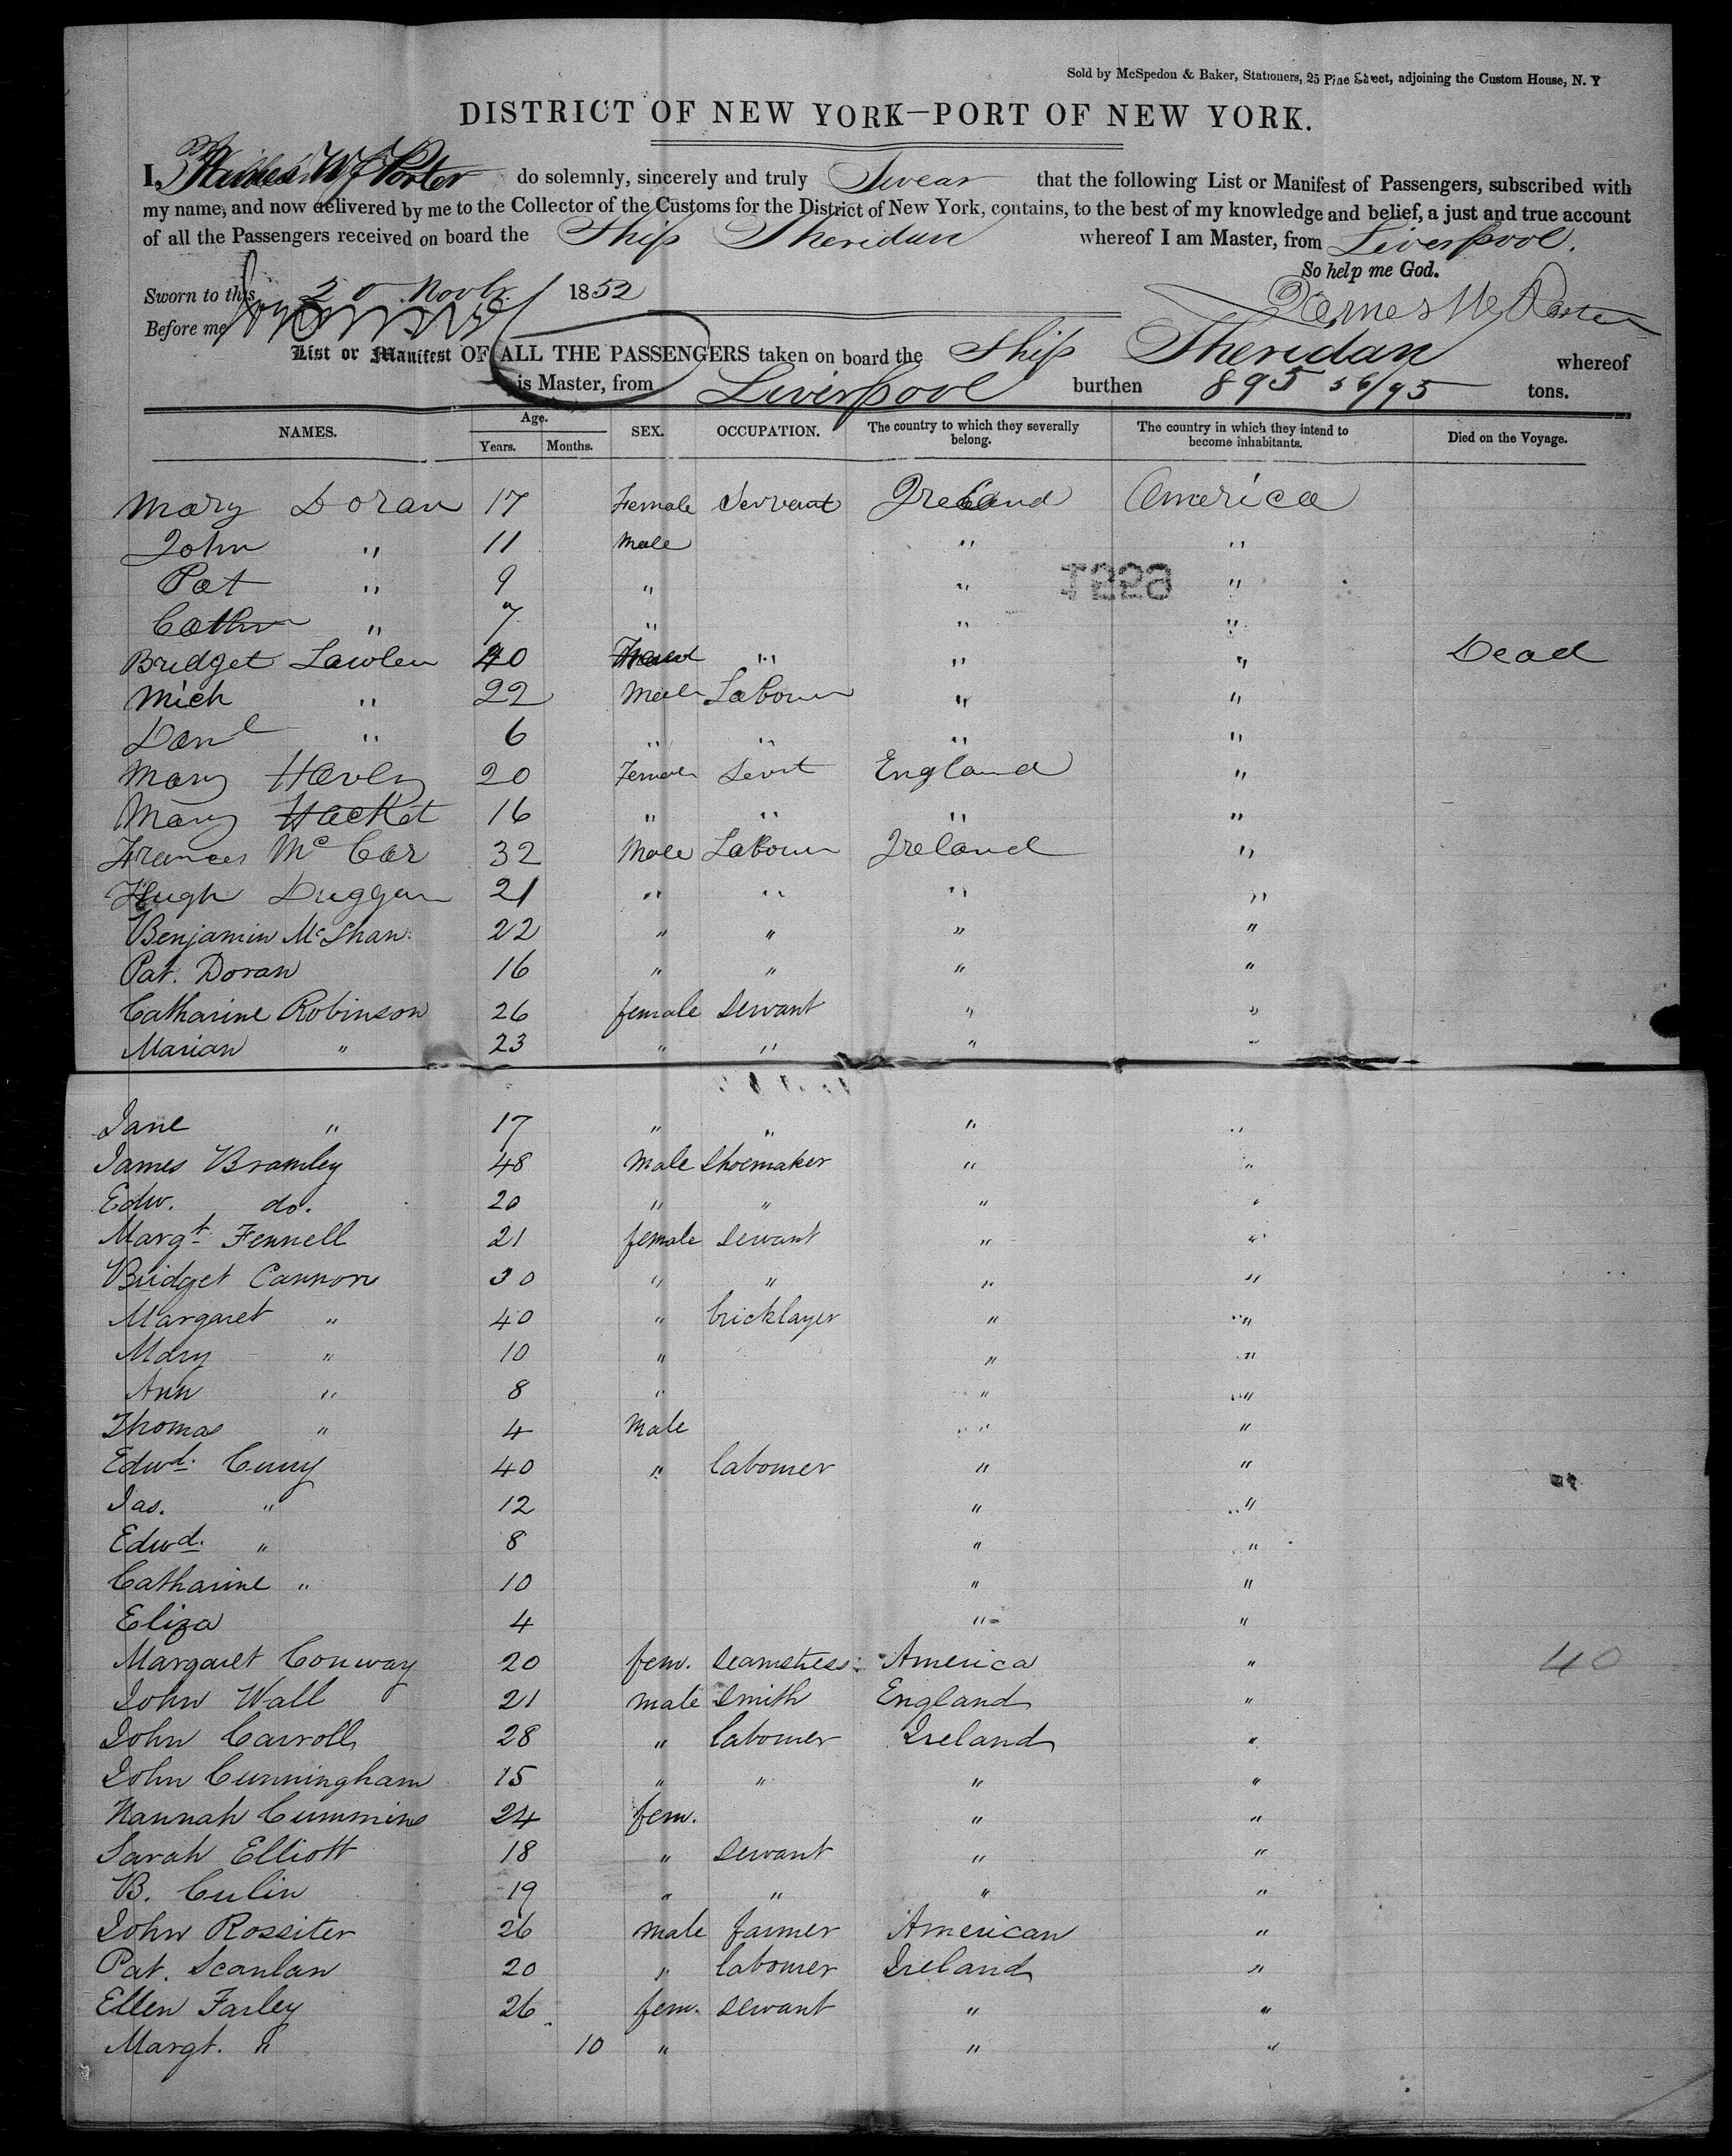 Sold by McSpedon & Baker, Stationers, 25 Pine Street, adjoining the Custom House, N. Y
DISTRICT OF NEW YORK—PORT OF NEW YORK.
I, Porter do solemnly, sincerely and truly Swear that the following List or Manifest of Passengers, subscribed with
my name, and now delivered by me to the Collector of the Customs for the District of New York, contains, to the best of my knowledge and belief, a just and true account
of all the Passengers received on board the Ship Sheridan whereof I am Master, from Liverpool.
So help me God.
Sworn to this 20 Novbr 1852
James W Porter
Before me
List or Manifest OF ALL THE PASSENGERS taken on board the Ship Sheridan whereof
is Master, from Liverpool burthen 895 56/95 tons.
NAMES. Age. Years. Months. SEX. OCCUPATION. The country to which they severally belong. The country in which they intend to become inhabitants. Died on the Voyage.
Mary Doran 17 Female Servant Ireland America
John " 11 Male " "
Pat " 9 " " "
Cathn " 7 " " "
Bridget Lawlen 40 " " " Dead
Mich " 22 Male Labour " "
Danl " 6 " " " "
Mary Haven 20 Female Servt England "
Mary Hacket 16 " " " "
Frances Mc Car 32 Male Labour Ireland "
Hugh Duggan 21 " " " "
Benjamin McShan 22 " " " "
Pat. Doran 16 " " " "
Catharine Robinson 26 female servant " "
Marian " 23 " " " "
Jane " 17 " " " "
James Bramley 48 male shoemaker " "
Edw. do. 20 " " " "
Margt. Fennell 21 female servant " "
Bridget Cannon 30 " " " "
Margaret " 40 " bricklayer " "
Mary " 10 " " "
Ann " 8 " " "
Thomas " 4 male " "
Edwd. Curry 40 " labourer " "
Jas. " 12 " "
Edwd. " 8 " "
Catharine " 10 " "
Eliza 4 " "
Margaret Conway 20 fem. seamstress America " 40
John Wall 21 male smith England "
John Carroll 28 " labourer Ireland "
John Cunningham 15 " " " "
Hannah Cummins 24 fem. " "
Sarah Elliott 18 " servant " "
B. Culin 19 " " " "
John Rossiter 26 male farmer American "
Pat. Scanlan 20 " labourer Ireland "
Ellen Farley 26 fem. servant " "
Margt. " 10 " " "